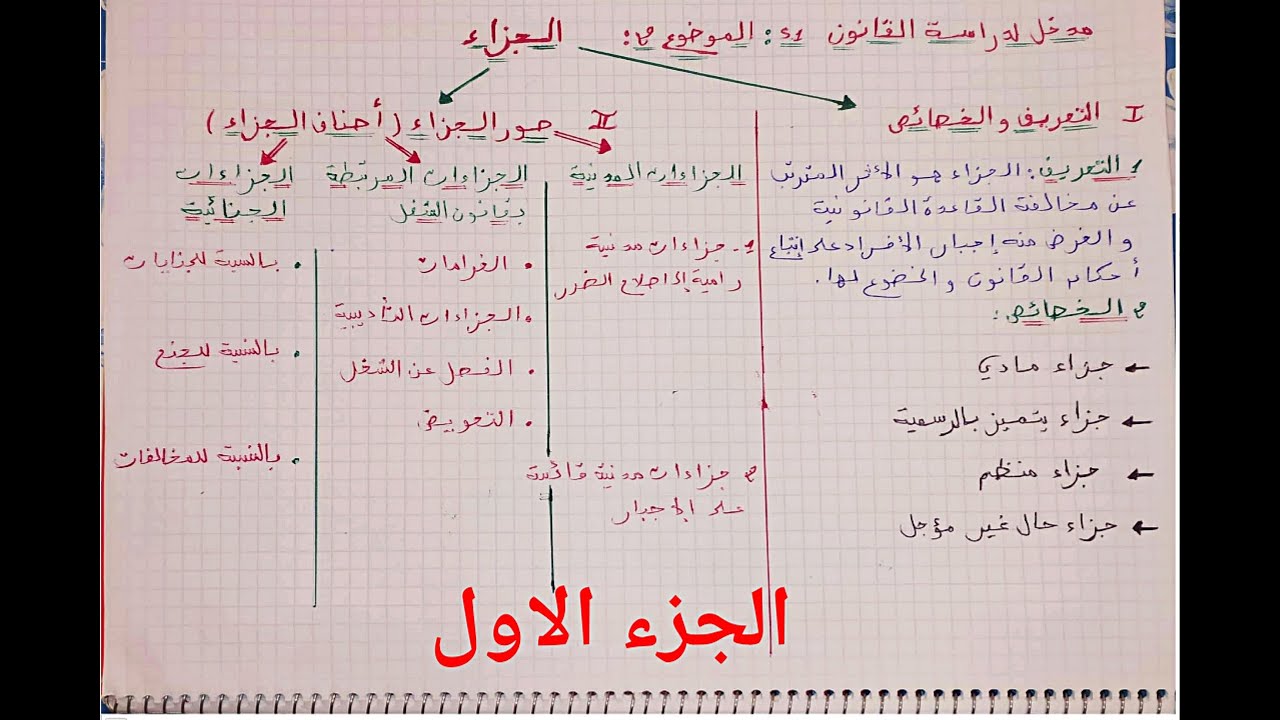 مدخل لدراسة القانون S1 : الموضوع 2: الجزاء
I التعريف والخصائص
1 التعريف: الجزاء هو الأثر المترتب
عن مخالفة القاعدة القانونية
و الغرض منه إجبار الأفراد على إتباع
أحكام القانون و الخضوع لها.
2 الخصائص:
← جزاء مادي
← جزاء يتميز بالرسمية
← جزاء منظم
← جزاء حال غير مؤجل
II صور الجزاء (أصناف الجزاء)
الجزاءات المدنية
1- جزاءات مدنية
رامية إلى اصلاح الضرر
2 جزاءات مدنية قائمة
على الاجبار
الجزاءات المرتبطة
بقانون الشغل
• الغرامات
• الجزاءات التأديبية
• الفصل عن الشغل
• التعويض
الجزاءات
الجنائية
• بالنسبة للجنايات
• بالنسبة للجنح
• بالنسبة للمخالفات
الجزء الاول